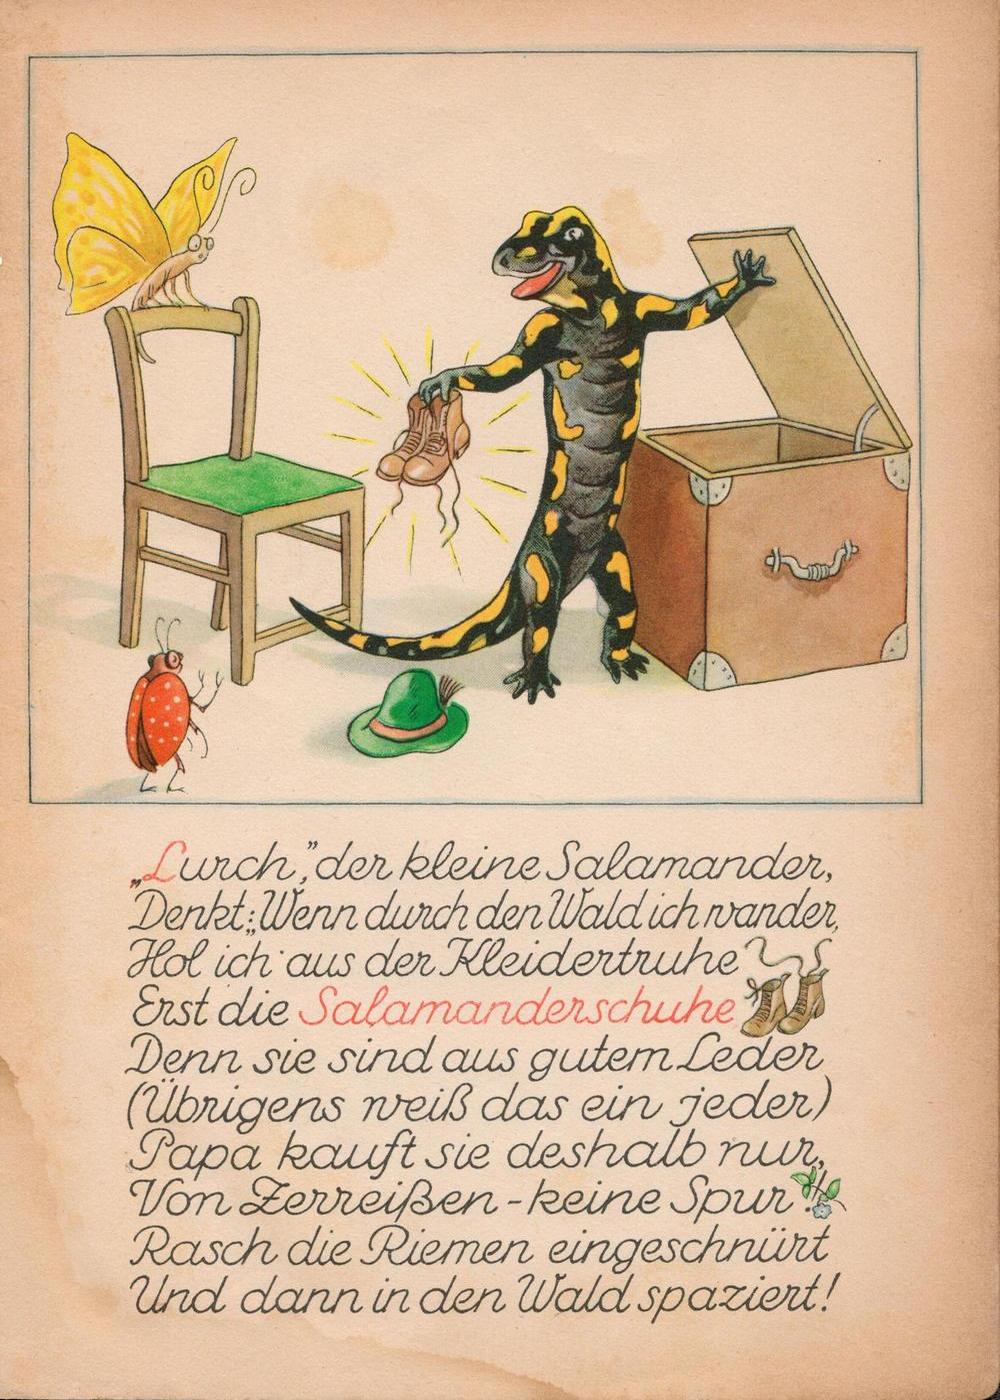 „Lurch,” der kleine Salamander,
Denkt: „Wenn durch den Wald ich wander,
Hol ich aus der Kleidertruhe
Erst die Salamanderschuhe
Denn sie sind aus gutem Leder
(Übrigens weiß das ein jeder)
Papa kauft sie deshalb nur,
Von Zerreißen - keine Spur!”
Rasch die Riemen eingeschnürt
Und dann in den Wald spaziert!